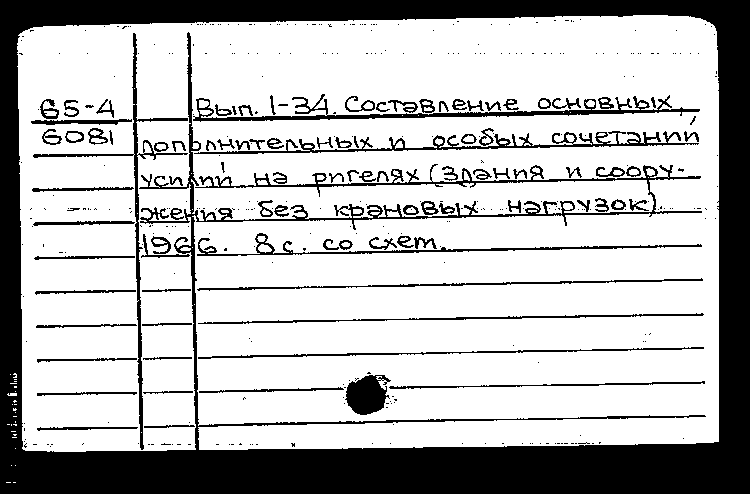 65-4 Вып. 1-34. Составление основных,
6081 дополнительных и особых сочетаний
усилий на ригелях (здания и соору-
жения без крановых нагрузок).
1966. 8 с. со схем.